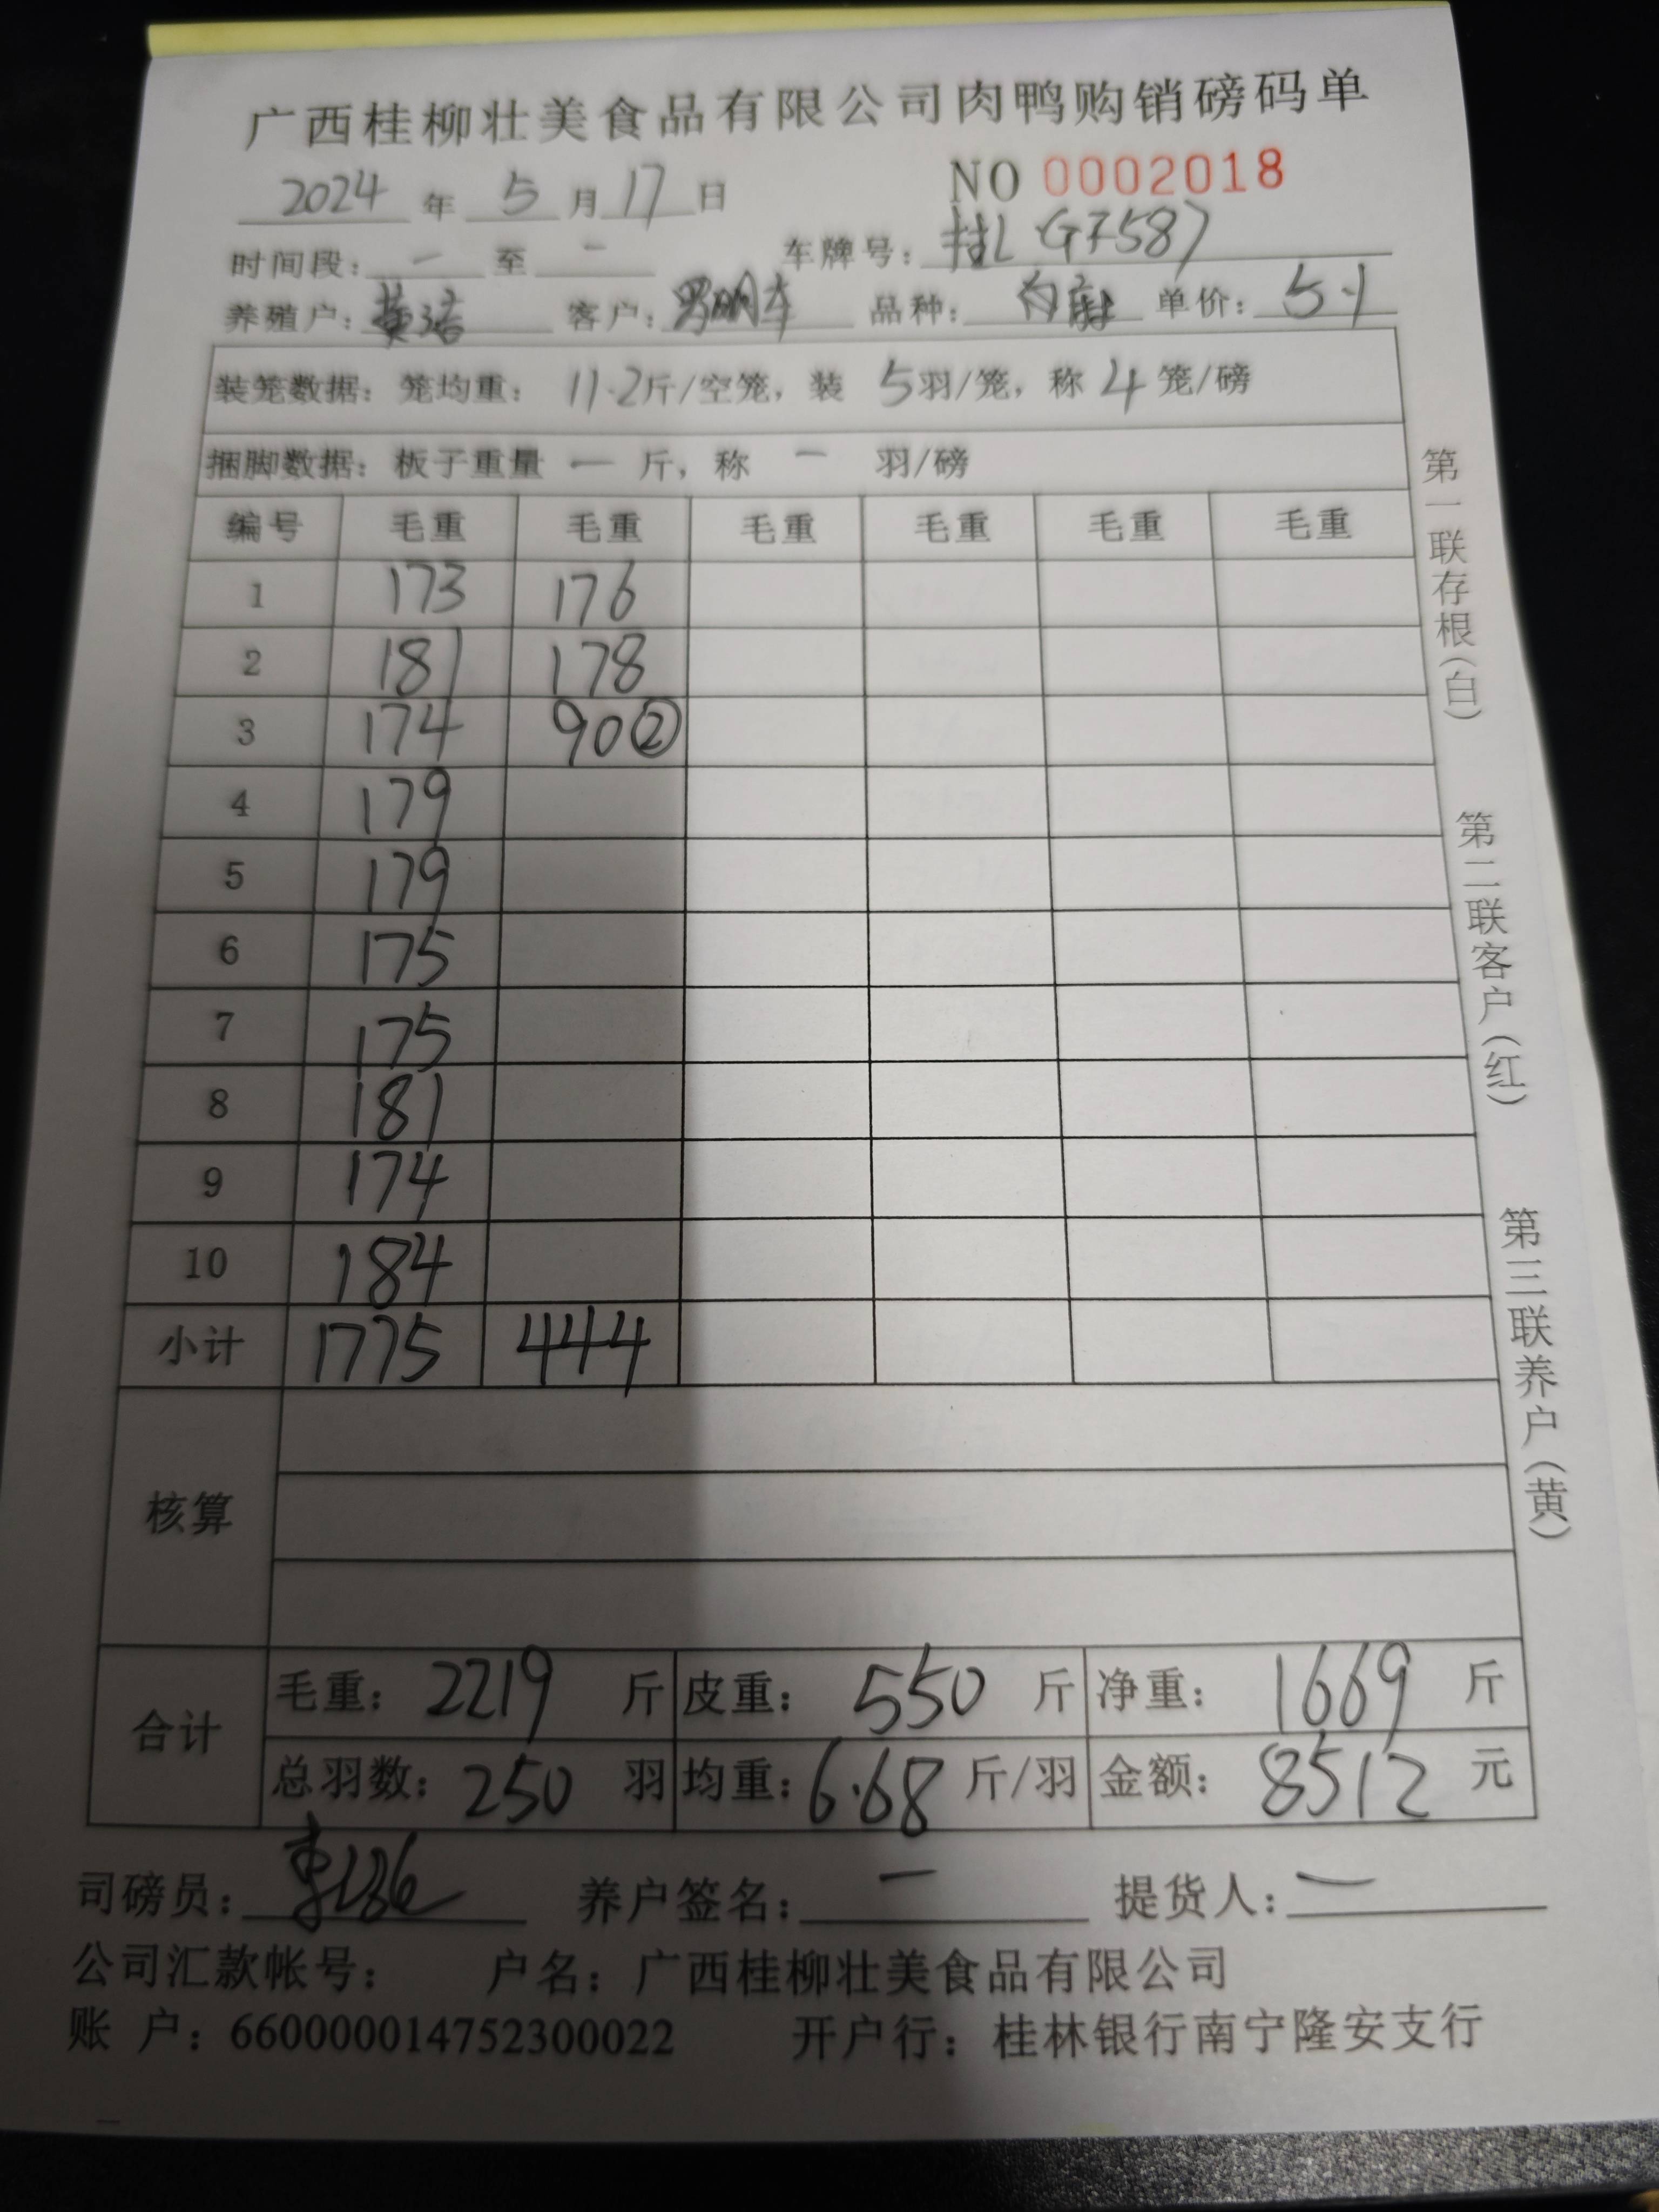 广西桂柳壮美食品有限公司肉鸭购销磅码单
2024 年 5 月 17 日 NO 0002018
时间段： 一 至 一 车牌号：桂L G7587
养殖户：黄 客户：罗明车 品种：白 单价：5.1
装笼数据：笼均重： 11.2斤/空笼，装 5羽/笼，称 4 笼/磅
捆脚数据：板子重量 一 斤，称 一 羽/磅
编号 毛重 毛重 毛重 毛重 毛重 毛重
1 173 176
2 181 178
3 174 90②
4 179
5 179
6 175
7 175
8 181
9 174
10 184
小计 1775 444
核算
合计
毛重： 2219 斤 皮重： 550 斤 净重： 1669 斤
总羽数： 250 羽 均重：6.68 斤/羽 金额： 8512 元
司磅员： 养户签名： 一 提货人：一
公司汇款帐号： 户名：广西桂柳壮美食品有限公司
账 户：660000014752300022 开户行：桂林银行南宁隆安支行
第一联存根（白）
第二联客户（红）
第三联养户（黄）